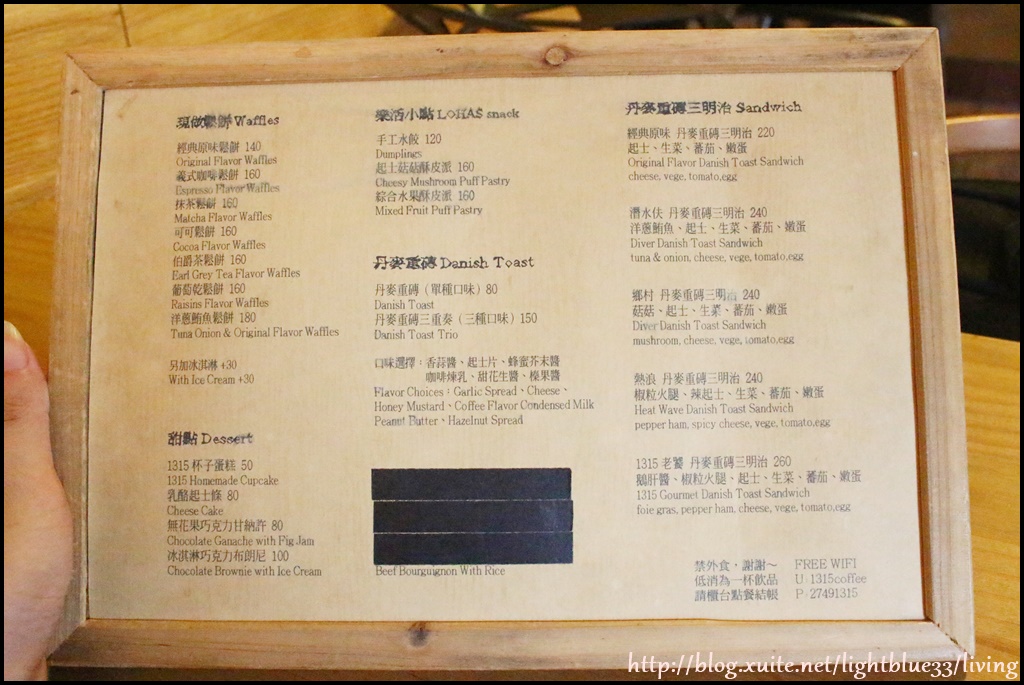 現做鬆餅 Waffles
經典原味鬆餅 140
Original Flavor Waffles
義式咖啡鬆餅 160
Espresso Flavor Waffles
抹茶鬆餅 160
Matcha Flavor Waffles
可可鬆餅 160
Cocoa Flavor Waffles
伯爵茶鬆餅 160
Earl Grey Tea Flavor Waffles
葡萄乾鬆餅 160
Raisins Flavor Waffles
洋蔥鮪魚鬆餅 180
Tuna Onion & Original Flavor Waffles
另加冰淇淋 +30
With Ice Cream +30
甜點 Dessert
1315 杯子蛋糕 50
1315 Homemade Cupcake
乳酪起士條 80
Cheese Cake
無花果巧克力甘納許 80
Chocolate Ganache with Fig Jam
冰淇淋巧克力布朗尼 100
Chocolate Brownie with Ice Cream
樂活小點 LOHAS snack
手工水餃 120
Dumplings
起士菇菇酥皮派 160
Cheesy Mushroom Puff Pastry
綜合水果酥皮派 160
Mixed Fruit Puff Pastry
丹麥重磚 Danish Toast
丹麥重磚（單種口味）80
Danish Toast
丹麥重磚三重奏（三種口味）150
Danish Toast Trio
口味選擇：香蒜醬、起士片、蜂蜜芥末醬
咖啡煉乳、甜花生醬、榛果醬
Flavor Choices：Garlic Spread、Cheese、
Honey Mustard、Coffee Flavor Condensed Milk
Peanut Butter、Hazelnut Spread
Beef Bourguignon With Rice
丹麥重磚三明治 Sandwich
經典原味 丹麥重磚三明治 220
起士、生菜、蕃茄、嫩蛋
Original Flavor Danish Toast Sandwich
cheese, vege, tomato,egg
潛水伕 丹麥重磚三明治 240
洋蔥鮪魚、起士、生菜、蕃茄、嫩蛋
Diver Danish Toast Sandwich
tuna & onion, cheese, vege, tomato,egg
鄉村 丹麥重磚三明治 240
菇菇、起士、生菜、蕃茄、嫩蛋
Diver Danish Toast Sandwich
mushroom, cheese, vege, tomato,egg
熱浪 丹麥重磚三明治 240
椒粒火腿、辣起士、生菜、蕃茄、嫩蛋
Heat Wave Danish Toast Sandwich
pepper ham, spicy cheese, vege, tomato,egg
1315 老饕 丹麥重磚三明治 260
鵝肝醬、椒粒火腿、起士、生菜、蕃茄、嫩蛋
1315 Gourmet Danish Toast Sandwich
foie gras, pepper ham, cheese, vege, tomato,egg
禁外食，謝謝～ FREE WIFI
低消為一杯飲品 U: 1315coffee
請櫃台點餐結帳 P: 27491315
http://blog.xuite.net/lightblue33/living